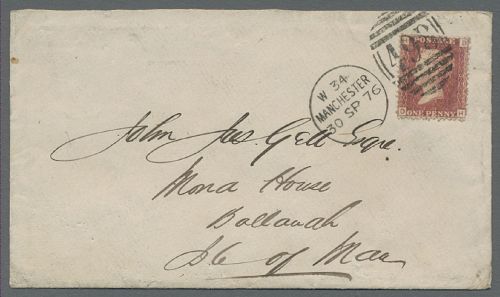 POSTAGE
ONE PENNY
W 34
MANCHESTER
30 SP 76
John Jas. Gell Esqre.
Mona House
Ballaugh
Isle of Man